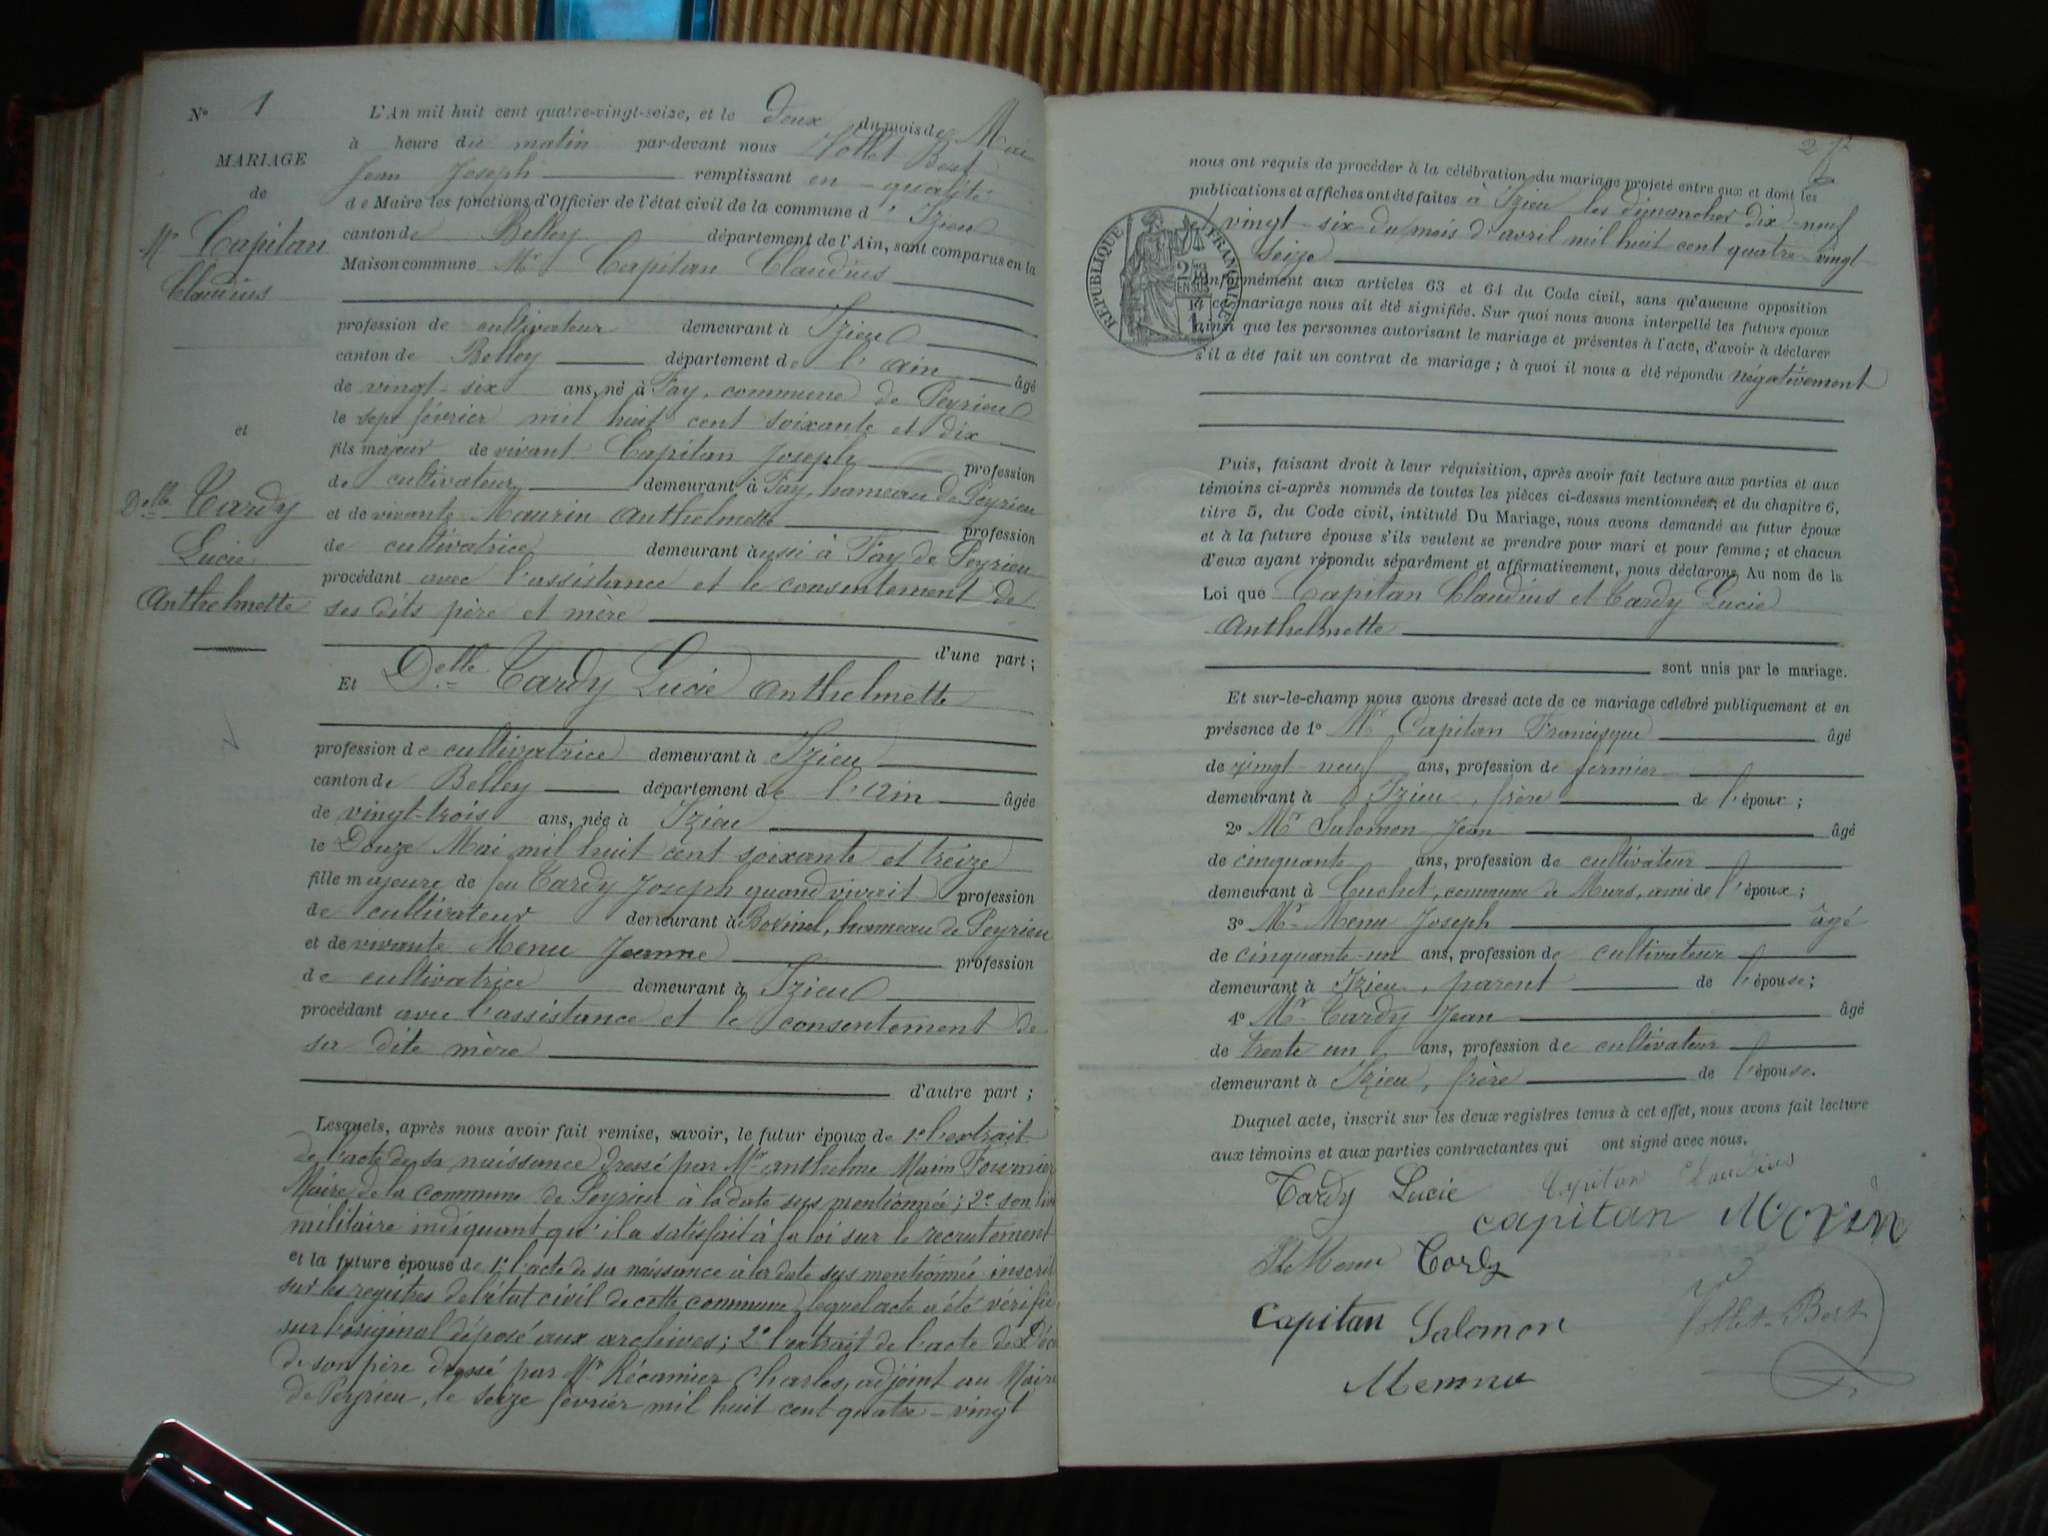 N° 1
MARIAGE
de
Mr Capitan
Claudius
et
Delle Tardy
Lucie
Anthelmette
L'An mil huit cent quatre-vingt-seize, et le deux du mois de Mai
à heure du matin par-devant nous Vollet Bert
Jean Joseph remplissant en qualité
de Maire les fonctions d'Officier de l'état civil de la commune d'Izieu
canton de Belley département de l'Ain, sont comparus en la
Maison commune Mr Capitan Claudius
profession de cultivateur demeurant à Izieu
canton de Belley département de l'Ain âgé
de vingt-six ans, né à Fay, commune de Peyrieu
le sept février mil huit cent soixante et dix
fils majeur de vivant Capitan Joseph profession
de cultivateur demeurant à Fay, hameau de Peyrieu
et de vivante Maurin Anthelmette profession
de cultivatrice demeurant aussi à Fay de Peyrieu
procédant avec l'assistance et le consentement de
ses dits père et mère
d'une part;
Et Delle Tardy Lucie Anthelmette
profession de cultivatrice demeurant à Izieu
canton de Belley département de l'Ain âgée
de vingt-trois ans, née à Izieu
le Douze Mai mil huit cent soixante et treize
fille majeure de feu Tardy Joseph quand vivait profession
de cultivateur demeurant à Bovinel, hameau de Peyrieu
et de vivante Menu Jeanne profession
de cultivatrice demeurant à Izieu
procédant avec l'assistance et le consentement de
sa dite mère
d'autre part;
Lesquels, après nous avoir fait remise, savoir, le futur époux de 1° l'extrait
de l'acte de sa naissance dressé par Mr Anthelme Marin Fournier
Maire de la commune de Peyrieu à la date sus mentionnée; 2° son
militaire indiquant qu'il a satisfait à la loi sur le recrutement
et la future épouse de 1° l'acte de sa naissance à la date sus mentionnée inscrit
sur les registres de l'état civil de cette commune lequel acte a été vérifié
sur l'original déposé aux archives; 2° l'extrait de l'acte de
de son père dressé par Mr Récamier Charles, adjoint au Maire
de Peyrieu, le seize février mil huit cent quatre-vingt
nous ont requis de procéder à la célébration du mariage projeté entre eux et dont les
publications et affiches ont été faites à Izieu les dimanches dix-neuf
et vingt-six du mois d'avril mil huit cent quatre-vingt
seize
RÉPUBLIQUE FRANÇAISE
conformément aux articles 63 et 64 du Code civil, sans qu'aucune opposition
à ce mariage nous ait été signifiée. Sur quoi nous avons interpellé les futurs époux
ainsi que les personnes autorisant le mariage et présentes à l'acte, d'avoir à déclarer
s'il a été fait un contrat de mariage; à quoi il nous a été répondu négativement
Puis, faisant droit à leur réquisition, après avoir fait lecture aux parties et aux
témoins ci-après nommés de toutes les pièces ci-dessus mentionnées, et du chapitre 6,
titre 5, du Code civil, intitulé Du Mariage, nous avons demandé au futur époux
et à la future épouse s'ils veulent se prendre pour mari et pour femme; et chacun
d'eux ayant répondu séparément et affirmativement, nous déclarons Au nom de la
Loi que Capitan Claudius et Tardy Lucie
Anthelmette
sont unis par le mariage.
Et sur-le-champ nous avons dressé acte de ce mariage célébré publiquement et en
présence de 1° Mr Capitan Francisque âgé
de vingt-neuf ans, profession de fermier
demeurant à Izieu, frère de l'époux;
2° Mr Salomon Jean âgé
de cinquante ans, profession de cultivateur
demeurant à Cuchet, commune de Murs, ami de l'époux;
3° Mr Menu Joseph âgé
de cinquante-un ans, profession de cultivateur
demeurant à Izieu, parent de l'épouse;
4° Mr Tardy Jean âgé
de trente un ans, profession de cultivateur
demeurant à Izieu, frère de l'épouse.
Duquel acte, inscrit sur les deux registres tenus à cet effet, nous avons fait lecture
aux témoins et aux parties contractantes qui ont signé avec nous.
Tardy Lucie Capitan Claudius
Capitan Morin
Menu Tardy
Capitan Salomon Vollet-Bert
Memnu